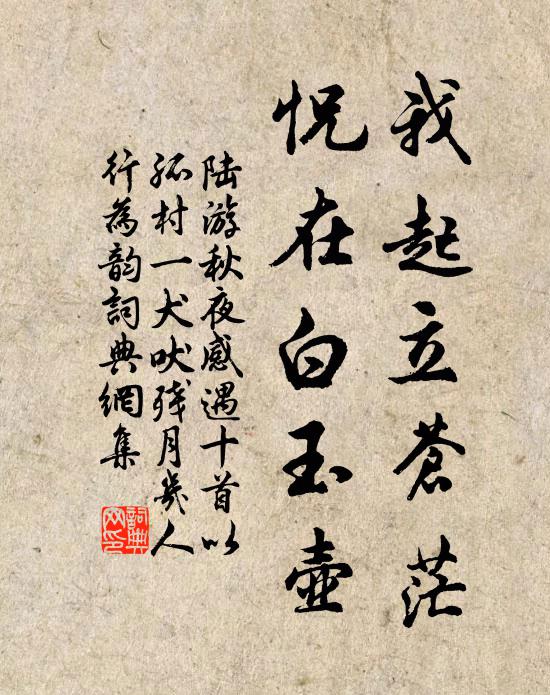 我起立蒼茫
怳在白玉壺
陆游秋夜感遇十首以
孤村一犬吠残月几人
行為韵詞典網集
詞典
网印